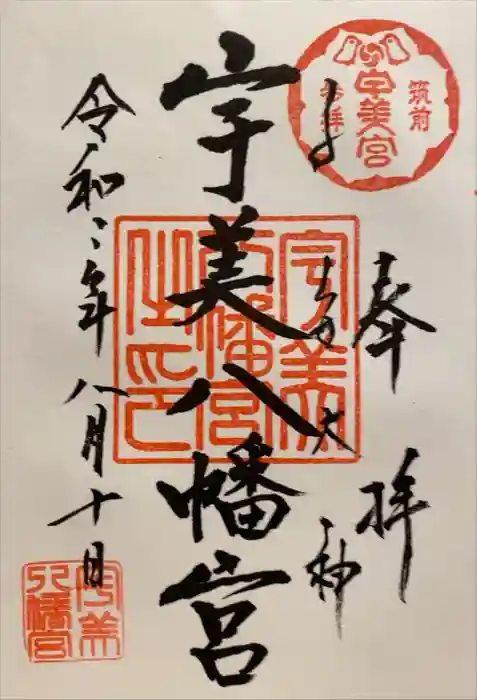 筑前
宇美宮
参拝
奉拝
大神
宇美八幡宮
宇美
八幡宮
之印
令和二年八月十日
宇美
八幡宮